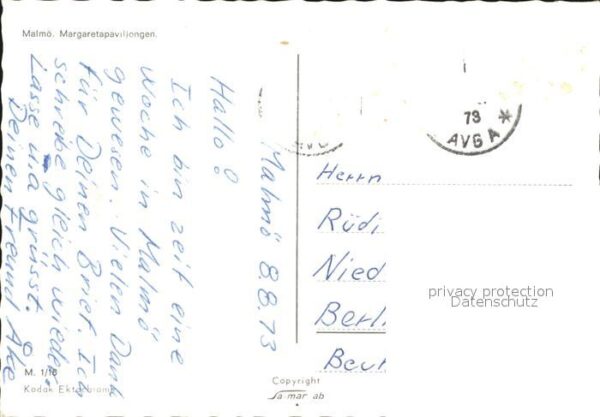 Malmö. Margaretapaviljongen.
Malmö 8.8.73
Hallo!
Ich bin zeit eine
Woche in Malmö
gewesen. Vielen Dank
für Deinen Brief. Ich
schreibe gleich wieder.
Lasse u.a grüsst.
Deinen Freund Åke
73
AVG A *
Herrn
Rüdi
Nied
Berli
privacy protection
Datenschutz
M. 1/18
Kodak Ektachrome
Copyright
sa mar ab